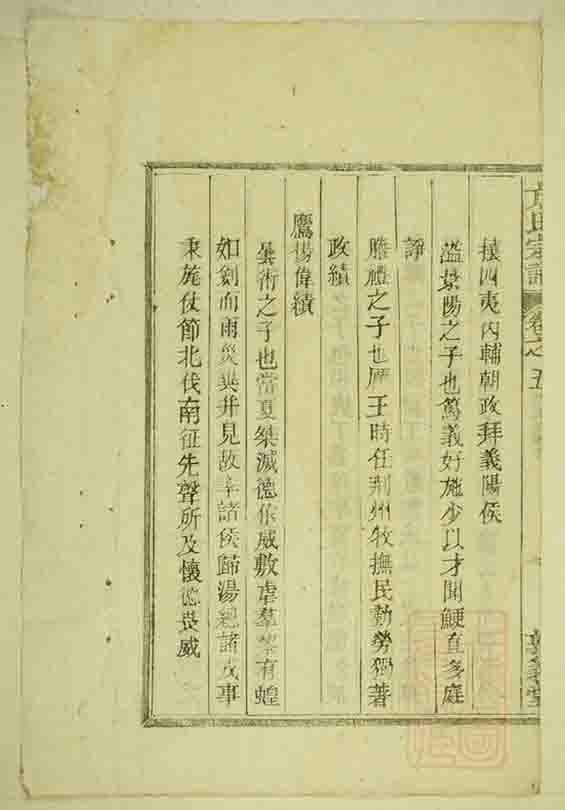 氏宗譜 卷之五
攘四夷內輔朝政拜義陽侯
溢景陽之子也篤義好施少以才聞鯁直多庭
諍
膽禮之子也厲王時任荆州牧撫民勤勞獨著
政績
鷹揚偉績
曇術之子也當夏桀滅德作威敷虐羣黎有蝗
如劍而雨災異并見故率諸侯歸湯總諸戎事
秉旄仗節北伐南征先聲所及懷德畏威